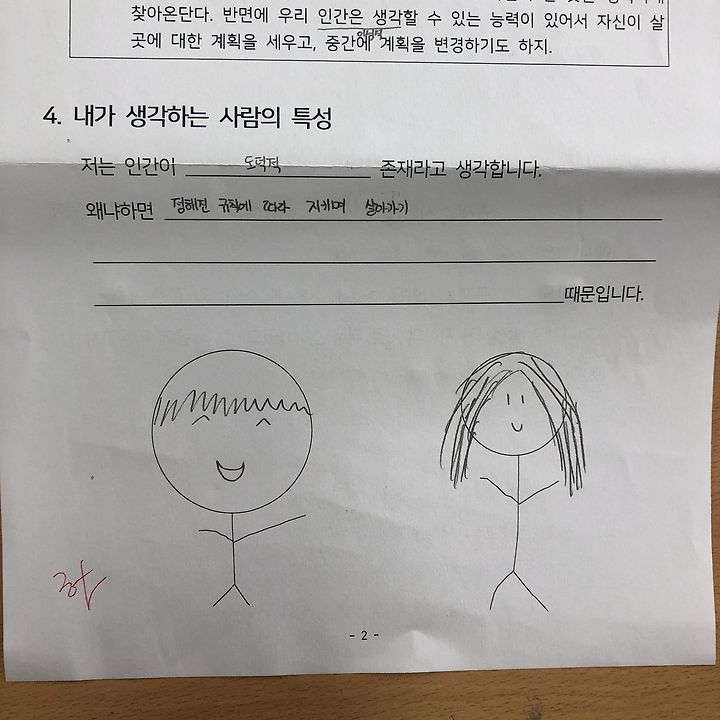 찾아온단다. 반면에 우리 인간은 생각할 수 있는 능력이 있어서 자신이 살
곳에 대한 계획을 세우고, 중간에 계획을 변경하기도 하지.
이성적
4. 내가 생각하는 사람의 특성
저는 인간이 도덕적 존재라고 생각합니다.
왜냐하면 정해진 규칙에 따라 지키며 살아가기
때문입니다.
- 2 -